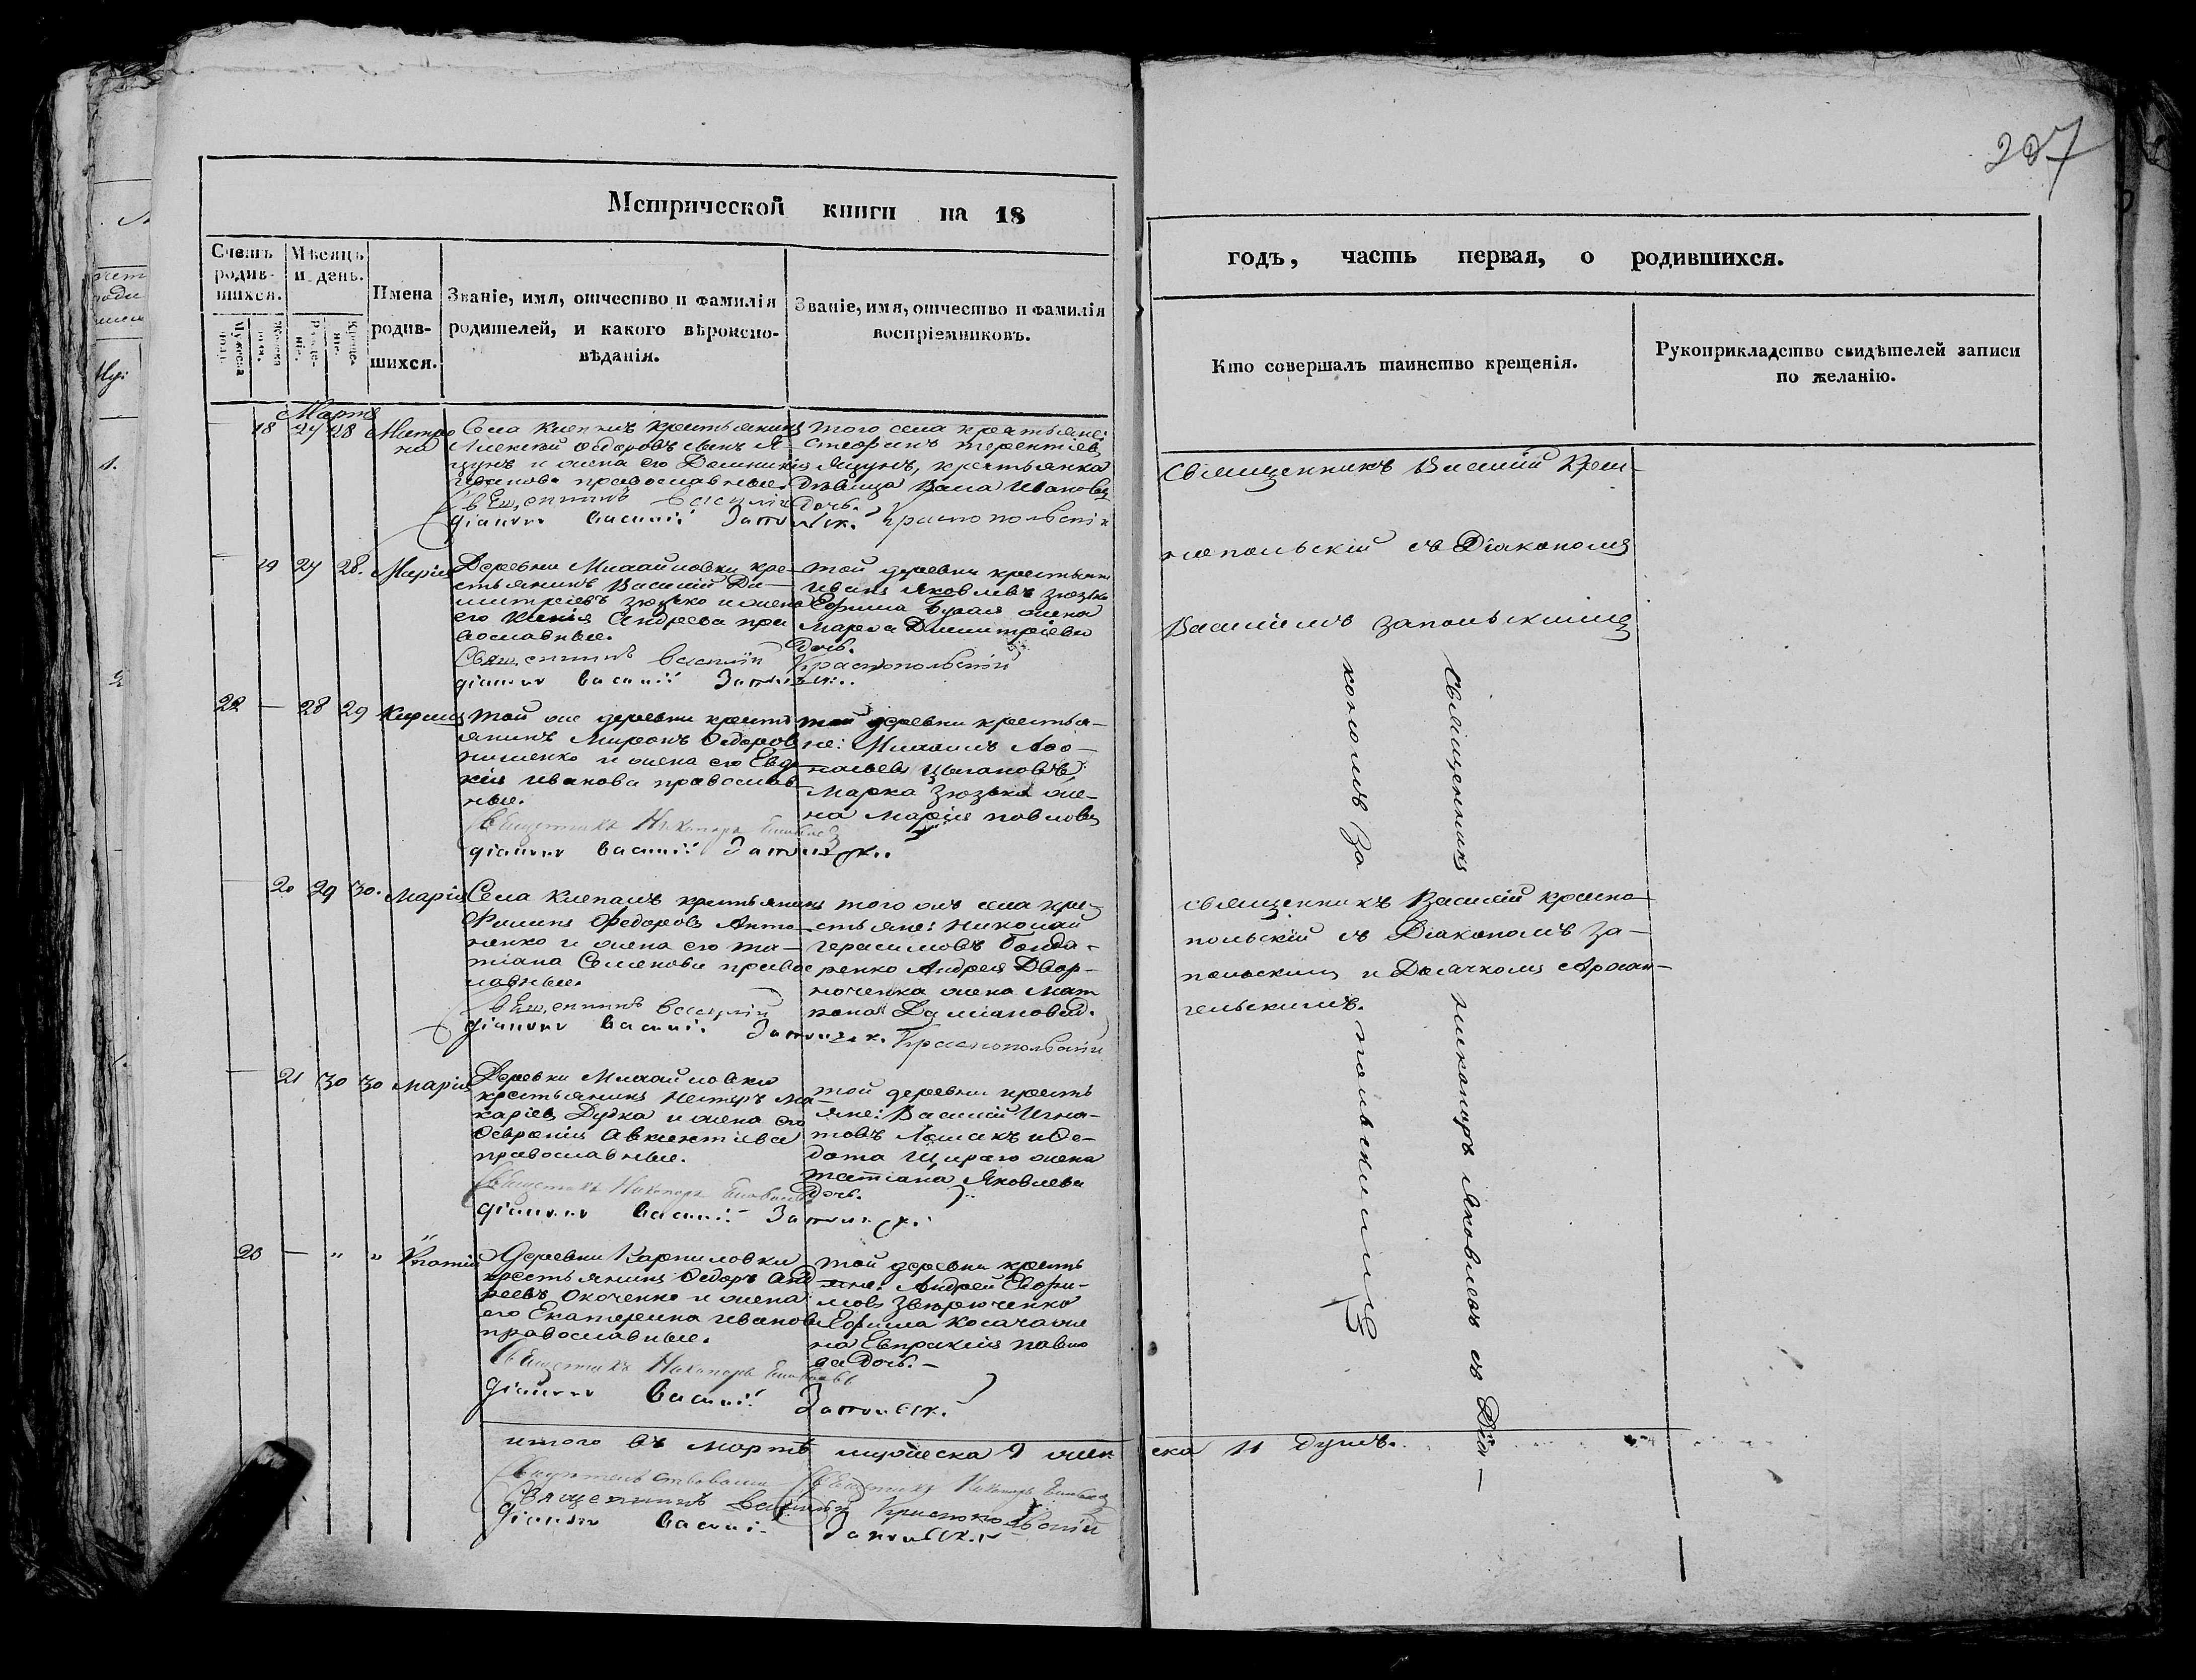 207
Метрической книги на 18
годъ, часть первая, о родившихся.
Счетъ родив- шихся.
Мѣсяцъ и день.
Имена родив- шихся.
Званіе, имя, отчество и фамилія родителей, и какого вѣроиспо- вѣданія.
Званіе, имя, отчество и фамилія воспріемниковъ.
Кто совершалъ таинство крещенія.
Рукоприкладство свидѣтелей записи по желанію.
Марта
18 27 28
Села Клепалъ крестьянинъ
Алексѣй Ѳедоровъ сынъ
и жена его Домникія
Иванова православные.
Священникъ Василій Краснопольскій
Діаконъ Василій Запольскій
того села крестьяне:
Стефанъ Терентіевъ
Яцунъ, крестьянка
Дѣвица Иванова
Дочь.
Священникъ Василій Крас-
нопольскій съ Діакономъ
Василіемъ Запольскимъ
— 19 27 28. Марія
Деревни Михайловки кре-
стьянинъ Василій Ди-
митріевъ Зюзько и жена
его Ксенія Андреева пра
вославные.
Священникъ Василій Краснопольскій
Діаконъ Василій Запольскій
той деревни крестьяне
Иванъ Яковлевъ Зюзько
Ефима жена
Марѳа Димитріева
Дочь.
22 — 28 29
той же деревни кресть
янинъ Миронъ Ѳедоровъ
и жена его Евдо
кія Иванова православ
ные.
Священникъ Никаноръ
Діаконъ Василій Запольскій
той деревни крестья-
не: Михаилъ
Цыгановъ
Марка Зюзька же-
на Марія Павлова
Священникъ
Никаноръ Яковлевъ съ Діа-
кономъ За
польскимъ
— 20 29 30. Марія
Села Клепалъ крестьянинъ
Филипъ Федоровъ Анто-
ненко и жена его Та-
тіана Семенова право
славные.
Священникъ Василій Краснопольскій
Діаконъ Василій Запольскій
того жъ села кре-
стьяне: Николай
Герасимовъ Бонда-
ренко Андрея Двор-
ниченка жена Мат
рона Даміанова.
священникъ Василій Красно-
польскій съ Діакономъ За-
польскимъ и Дьячкомъ Архан-
гельскимъ.
— 21 30 30 Марія
Деревни Михайловки
крестьянинъ Несторъ Ма-
каріевъ Дудка и жена его
Ѳевронія Авксентіева
православные.
Священникъ Никаноръ
Діаконъ Василій Запольскій
той деревни кресть
яне: Василій Игна-
товъ Ломакъ и Ѳе-
дота Щираго жена
Татіана Яковлева
Дочь.
23 — " " Ипатій
Деревни Карпиловки
крестьянинъ Ѳедоръ Анд
реевъ и жена
его Екатерина Иванова
православные.
Священникъ Никаноръ
Діаконъ Василій Запольскій
той деревни кресть
яне: Андрей Евфи-
мовъ
Ефима Косача же
на Евпраксія Павло
ва Дочь.—
итого въ Мартѣ мужеска 9 жен-
ска 11 душъ.
Свидѣтельствовали Священникъ Никаноръ
Священникъ Василій Краснопольскій
Діаконъ Василій Запольскій